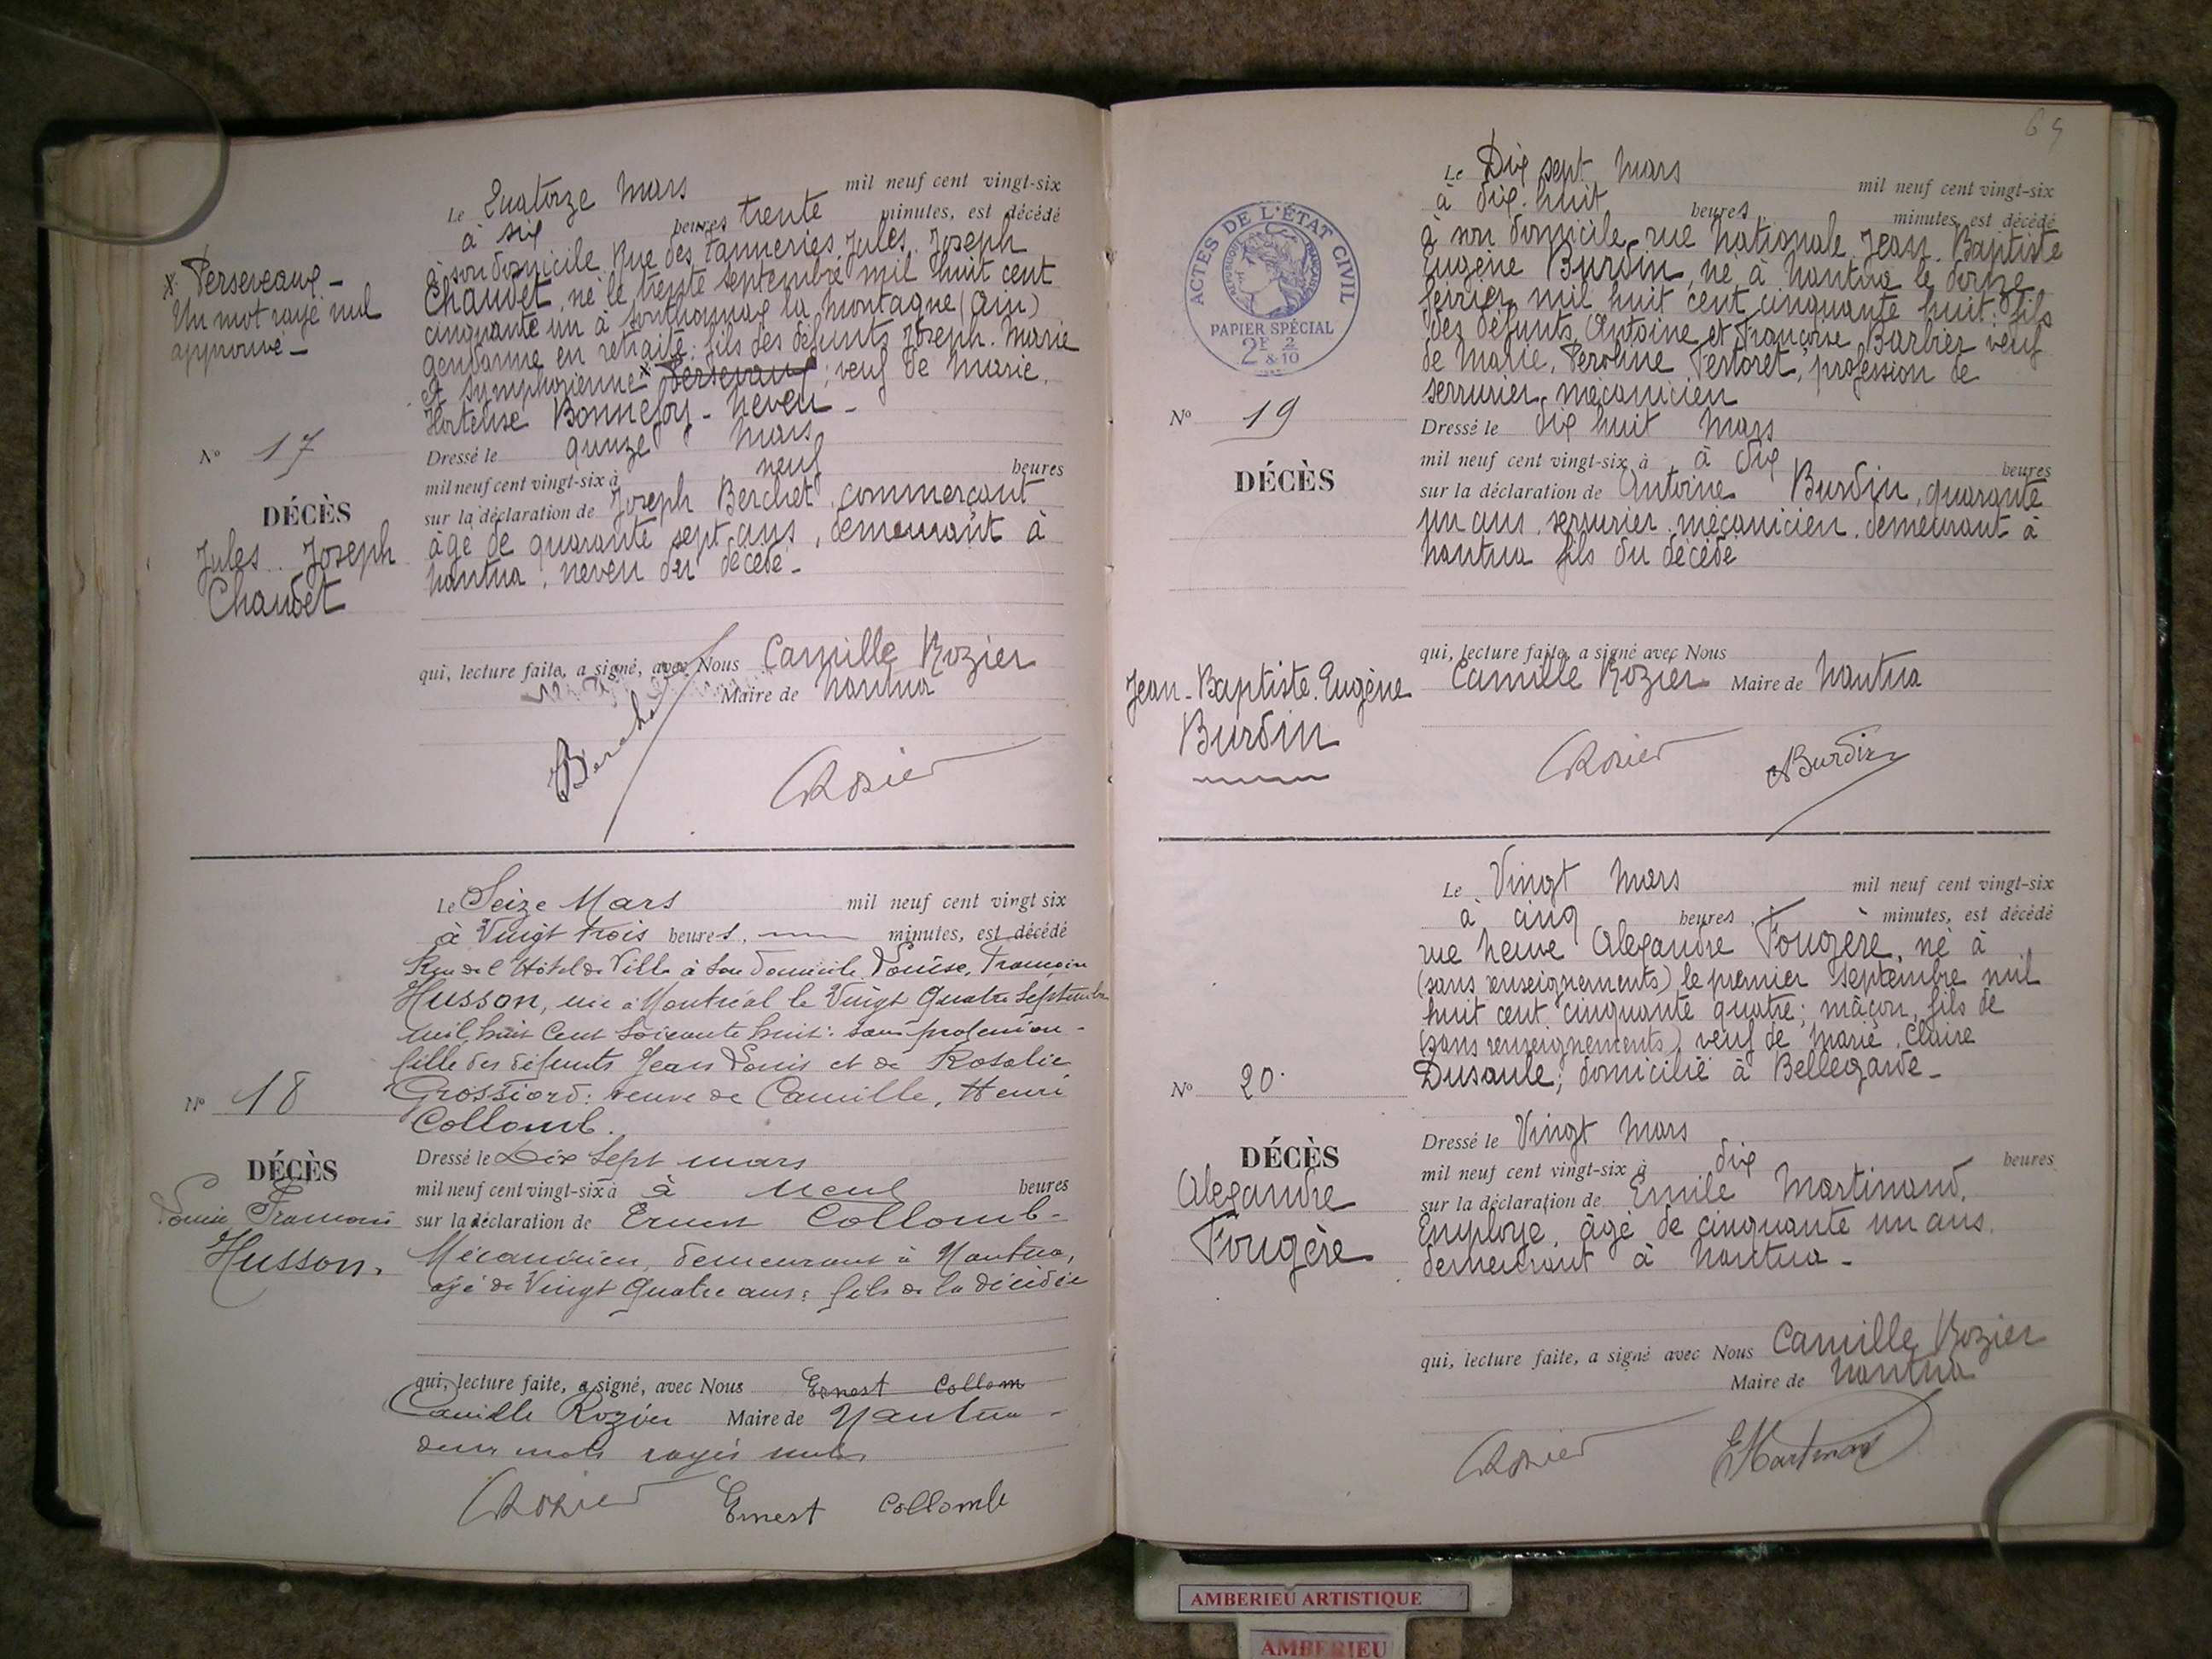 Le Quatorze Mars mil neuf cent vingt-six
à six heures trente minutes, est décédé
à son domicile Rue des Tanneries, Jules, Joseph
Chaudet, né le trente septembre mil huit cent
cinquante un à Sonthonnax la Montagne (Ain)
gendarme en retraite: fils des défunts Joseph. Marie
et Symphorienne x Persevaux; veuf de Marie,
Hortense Bonnefoy - neveu -
x Perseveaux -
Un mot rayé nul
approuvé -
N° 17
DÉCÈS
Jules. Joseph
Chaudet
Dressé le quinze Mars
mil neuf cent vingt-six à neuf heures
sur la déclaration de Joseph Berchet, commerçant
âgé de quarante sept ans, demeurant à
Nantua, neveu du décédé -
qui, lecture faite, a signé, avec Nous Camille Rozier
Maire de Nantua
Berchet
CRozier
Le Seize Mars mil neuf cent vingt six
à Vingt trois heures, minutes, est décédé
Rue de l'Hôtel de Ville à son domicile Louise,
Husson, née à Montréal le Vingt Quatre Septembre
mil huit cent soixante huit: sans profession -
fille des défunts Jean Louis et de Rosalie
Grossiord: veuve de Camille, Henri
Collomb.
N° 18
DÉCÈS
Louise
Husson.
Dressé le Dix Sept mars
mil neuf cent vingt-six à à Neuf heures
sur la déclaration de Ernest Collomb -
Mécanicien, demeurant à Nantua,
âgé de Vingt Quatre ans: fils de la décédée
qui, lecture faite, a signé, avec Nous Ernest Collom
Camille Rozier Maire de Nantua -
deux mots rayés nuls
CRozier Ernest Collomb
Le Dix sept Mars mil neuf cent vingt-six
à dix-huit heures, minutes, est décédé
à son domicile, rue Nationale, Jean-Baptiste
Eugène Burdin, né à Nantua le douze
février mil huit cent cinquante huit: fils
des défunts, Antoine et Françoise Barbier veuf
de Marie, Peroline Pertoret, profession de
serrurier mécanicien
ACTES DE L'ÉTAT CIVIL
PAPIER SPÉCIAL
2F 2/10
N° 19
DÉCÈS
Jean-Baptiste. Eugène
Burdin
Dressé le dix huit Mars
mil neuf cent vingt-six à à dix heures
sur la déclaration de Antoine Burdin, quarante
un ans, serrurier mécanicien, demeurant à
Nantua fils du décédé
qui, lecture faite, a signé avec Nous
Camille Rozier Maire de Nantua
CRozier ABurdin
Le Vingt Mars mil neuf cent vingt-six
à cinq heures, minutes, est décédé
rue Neuve Alexandre Fougère, né à
(sans renseignements) le premier septembre mil
huit cent cinquante quatre; mâçon, fils de
(sans renseignements) veuf de Marie, Claire
Dusaule; domicilié à Bellegarde -
N° 20
DÉCÈS
Alexandre
Fougère
Dressé le Vingt Mars
mil neuf cent vingt-six à dix heures
sur la déclaration de Emile Martinand,
Employé, âgé de cinquante un ans,
demeurant à Nantua -
qui, lecture faite, a signé avec Nous Camille Rozier
Maire de Nantua
CRozier EMartinand
AMBERIEU ARTISTIQUE
AMBERIEU